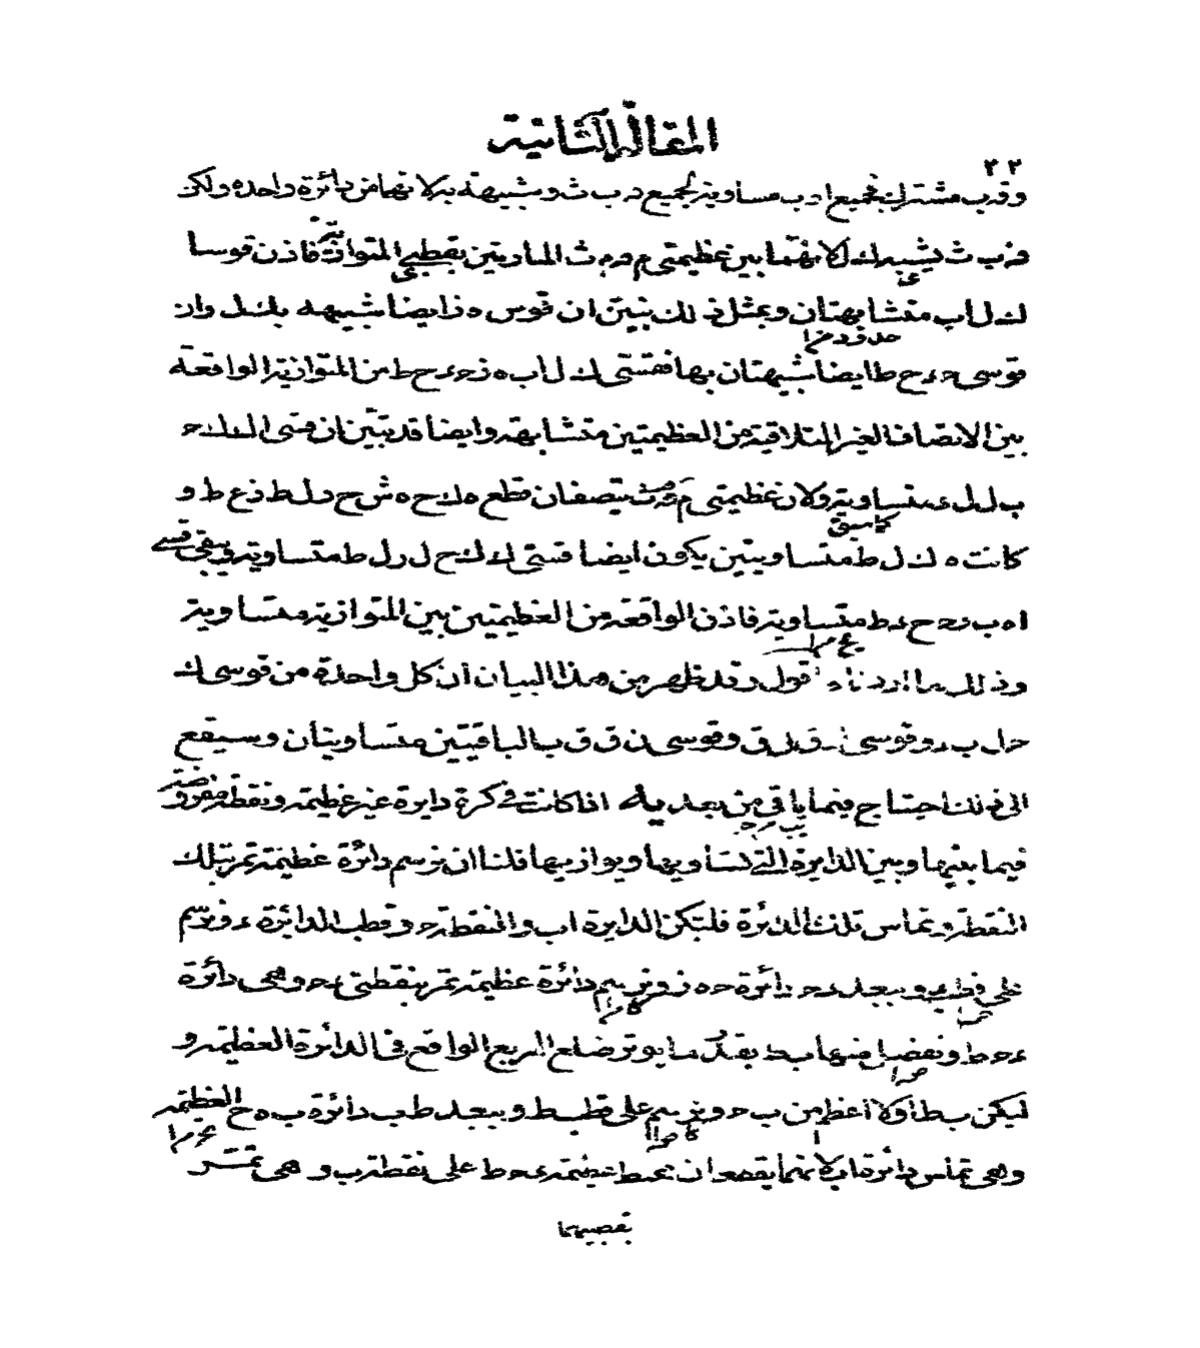 المقالة الثانية
٢٢
وقرب مشترك فجميع ا د ب مساوية لجميع د ب ث وشبيهة به لانهما من دائرة واحدة ولكن
د ب ث يشبه ك ل لانهما بين عظيمتى م د م ث المارتين بقطبى المتوازية فاذن قوسا
ك ل ا ب متشابهتان وبمثل ذلك نبين ان قوس ه ز ايضا شبيهة ب ك ل وان
قوسى ح ء ح ط ايضا شبيهتان بها فقسى ك ل ا ب ه ز ح ء ح ط من المتوازية الواقعة
بين الانصاف الغير المتلاقية من العظيمتين متشابهة وايضا قد تبين ان قسى ا ك ك ح
ب ل ل ء متساوية ولان عظيمتى م د م ث ينصفان قطع ه ك ح ه ش ح د ل ط ز ع ط و
كما سبق
كانت ه ك ل ط متساويتين يكون ايضا قسى ك ك ح ل ز ل ط متساوية ويبقى قسى
ا ه ب ز ح ح ء ط متساوية فاذن الواقعة من العظيمتين بين المتوازية متساوية
وذلك ما اردناه اقول وقد ظهر من هذا البيان ان كل واحدة من قوسى ك
ح ل ب ء وقوسى ق ل ق وقوسى ن ق ق ب الباقيتين متساويتان وسيقع
الى ذلك احتياج فيما ياتى من بعد يه اذا كانت فى كرة دايرة غير عظيمة ونقطة مفروضة
فيما بينها وبين الدايرة التى تساويها ويوازيها فلنا ان نرسم دائرة عظيمة تمر بتلك
النقطة وتماس تلك الدائرة فلتكن الدايرة ا ب والنقطة ح وقطب الدائرة ء ونرسم
على قطب ء وببعد ء ح دائرة ح ه ز ونرسم دائرة عظيمة تمر بنقطتى ء ح وهى دائرة
ء ح ط ونفصل منها ب ط بقدر ما يوتر ضلع المربع الواقع فى الدائرة العظيمة و
ليكن ب ط اولا اعظم من ب ح ونرسم على قطب ط وببعد ط ب دائرة ب ه ح العظيمة
وهى تماس دائرة ا ب لانهما يقطعان محيط عظيمة ء ح ط على نقطة ب وهى تمر
بقطبيهما